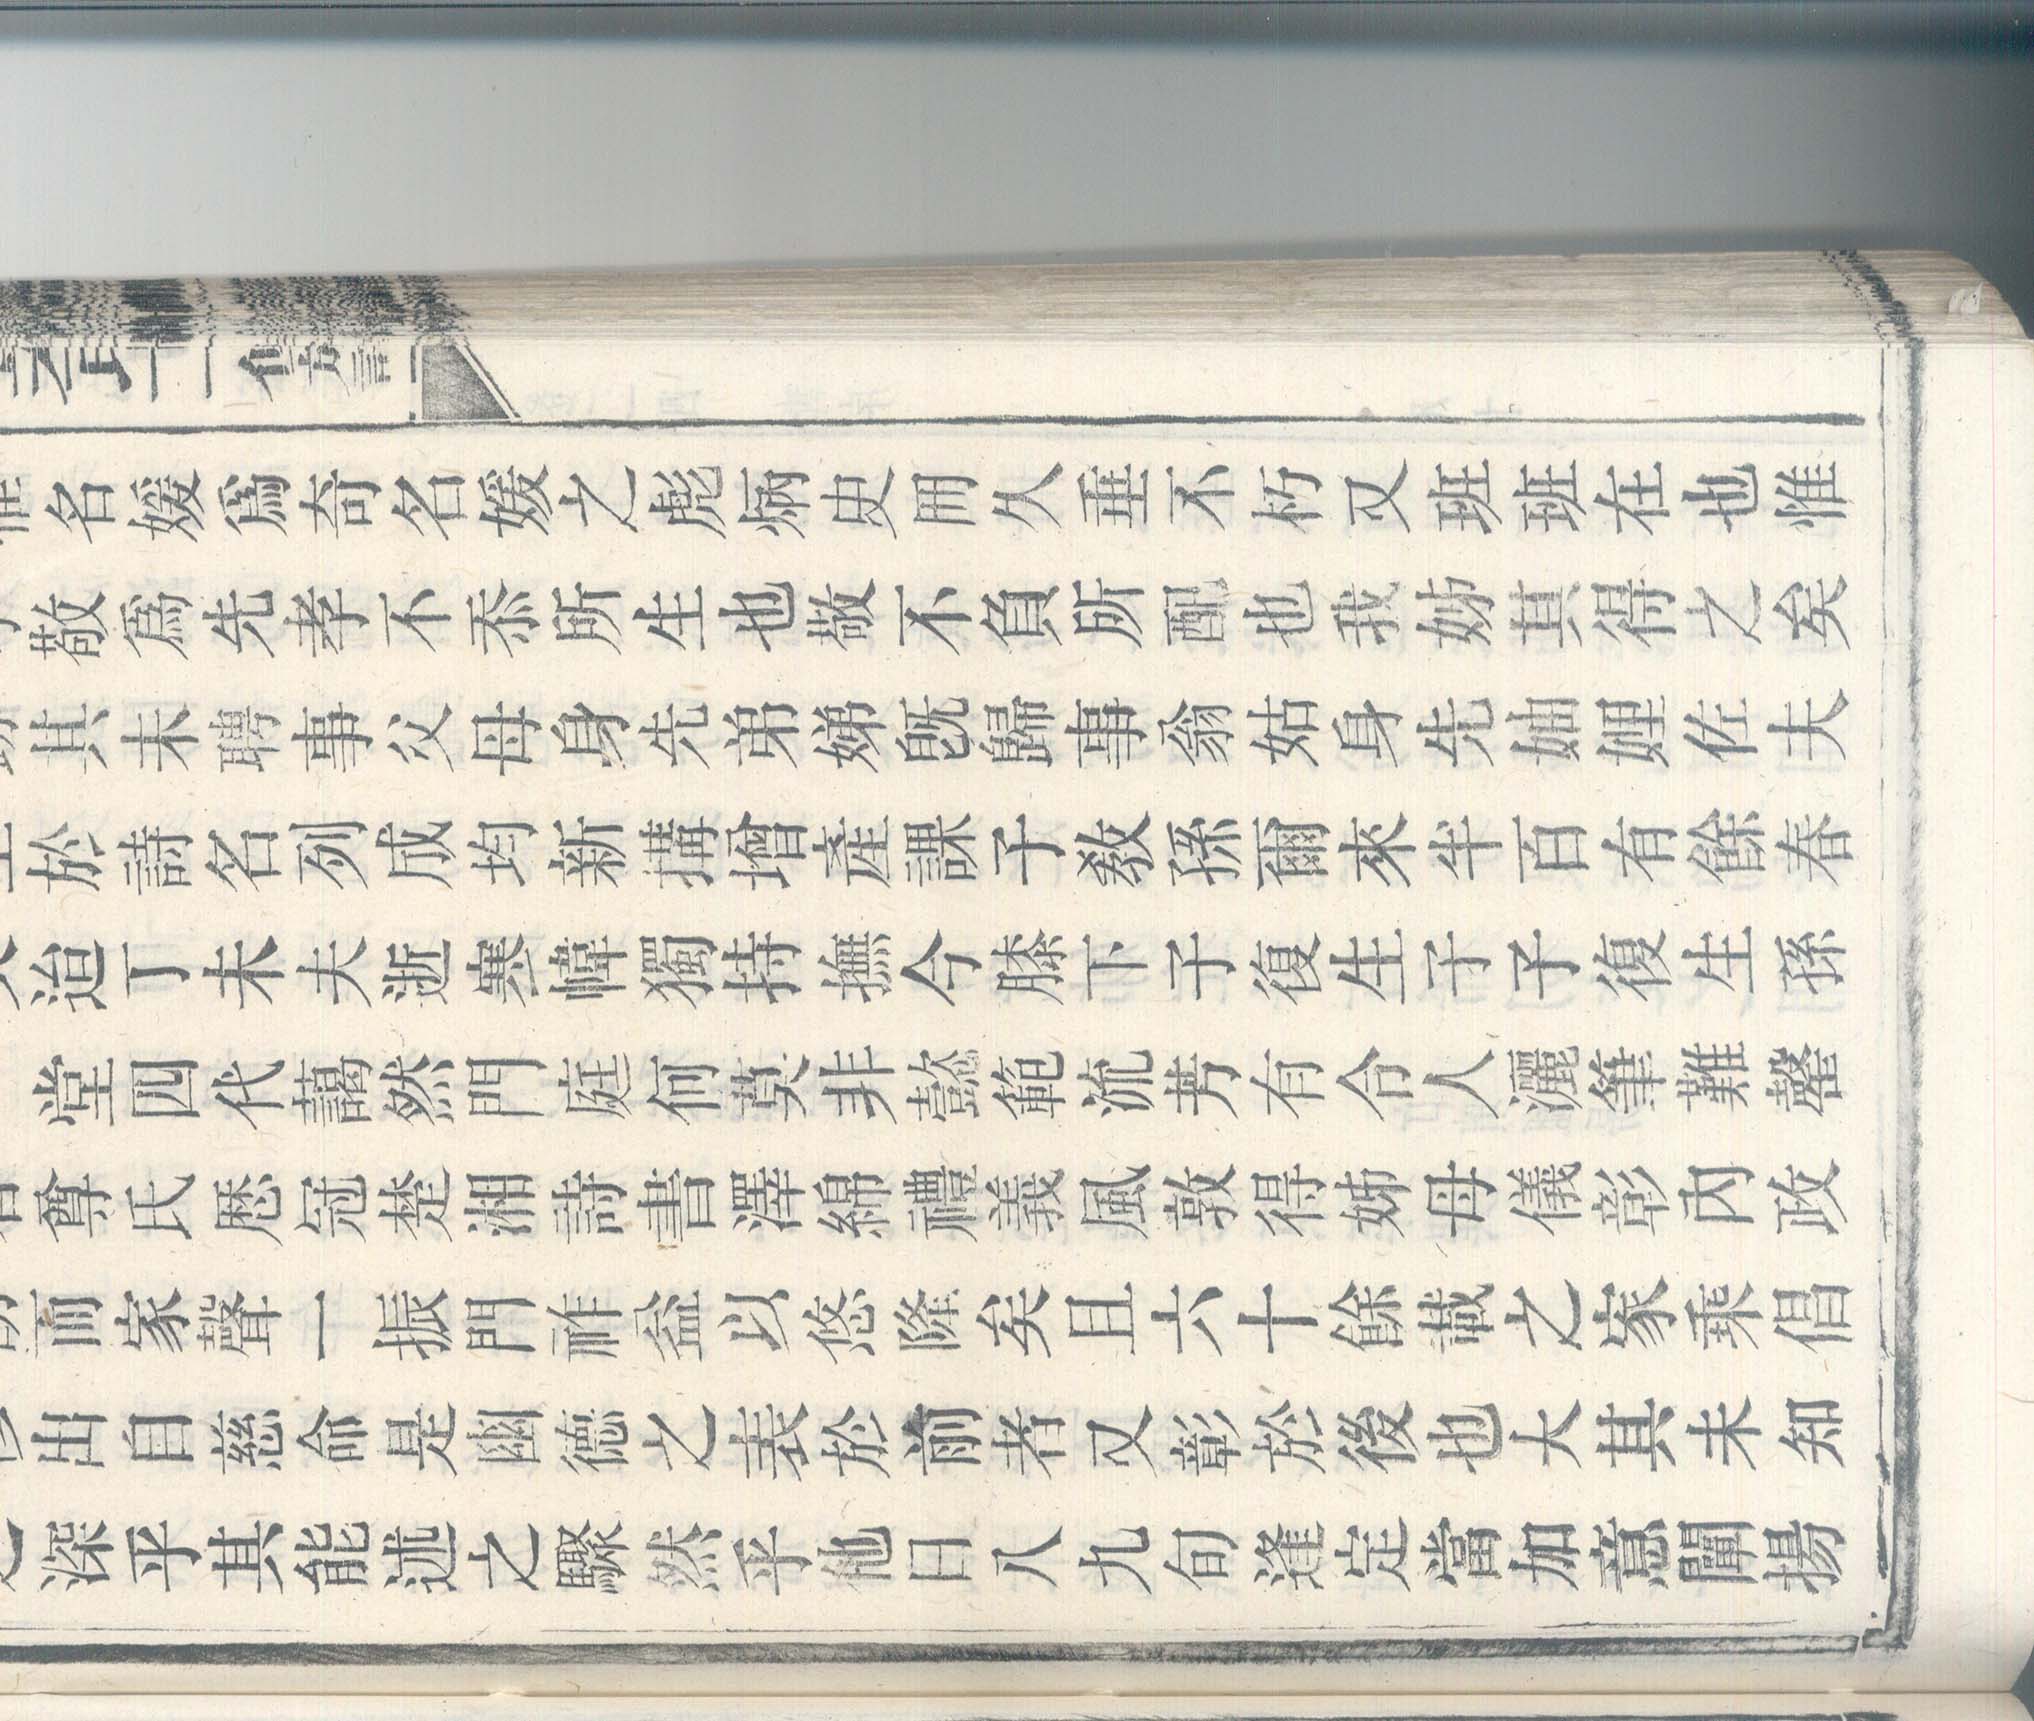 名媛爲奇名媛之彪炳史冊久垂不朽又班班在也惟
敬爲先孝不忝所生也敬不負所配也我姊其得之矣
其未聘事父母身先弟娣旣歸事翁姑身先妯娌佐夫
於詩名列成均新搆增產課子教孫爾來半百有餘春
迨丁未夫逝寒幃獨持撫今膝下子復生子子復生孫
堂四代藹然門庭何莫非懿範流芳有令人灑筆難罄
尊氏歷冠楚湘詩書澤綿禮義風敦得姊母儀彰內政
而家聲一振門祚益以悠隆矣且六十餘載之家乘倡
出自慈命是幽德之表於前者又彰於後也大其未知
深乎其能述之驟然乎他日八九旬逢定當加意闡揚